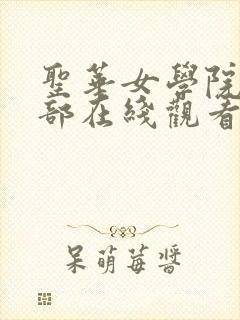 聖華女學院
部在綫觀看
呆萌莓醬